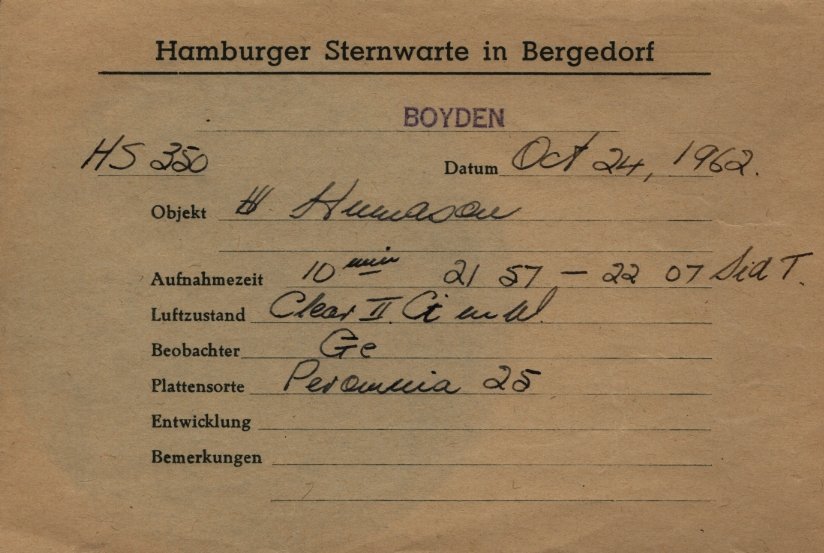 Hamburger Sternwarte in Bergedorf
BOYDEN
HS 350 Datum Oct 24, 1962.
Objekt Humason
Aufnahmezeit 10 min 21 57 — 22 07 Sid T.
Luftzustand Clear II
Beobachter Ge
Plattensorte Peromnia 25
Entwicklung
Bemerkungen